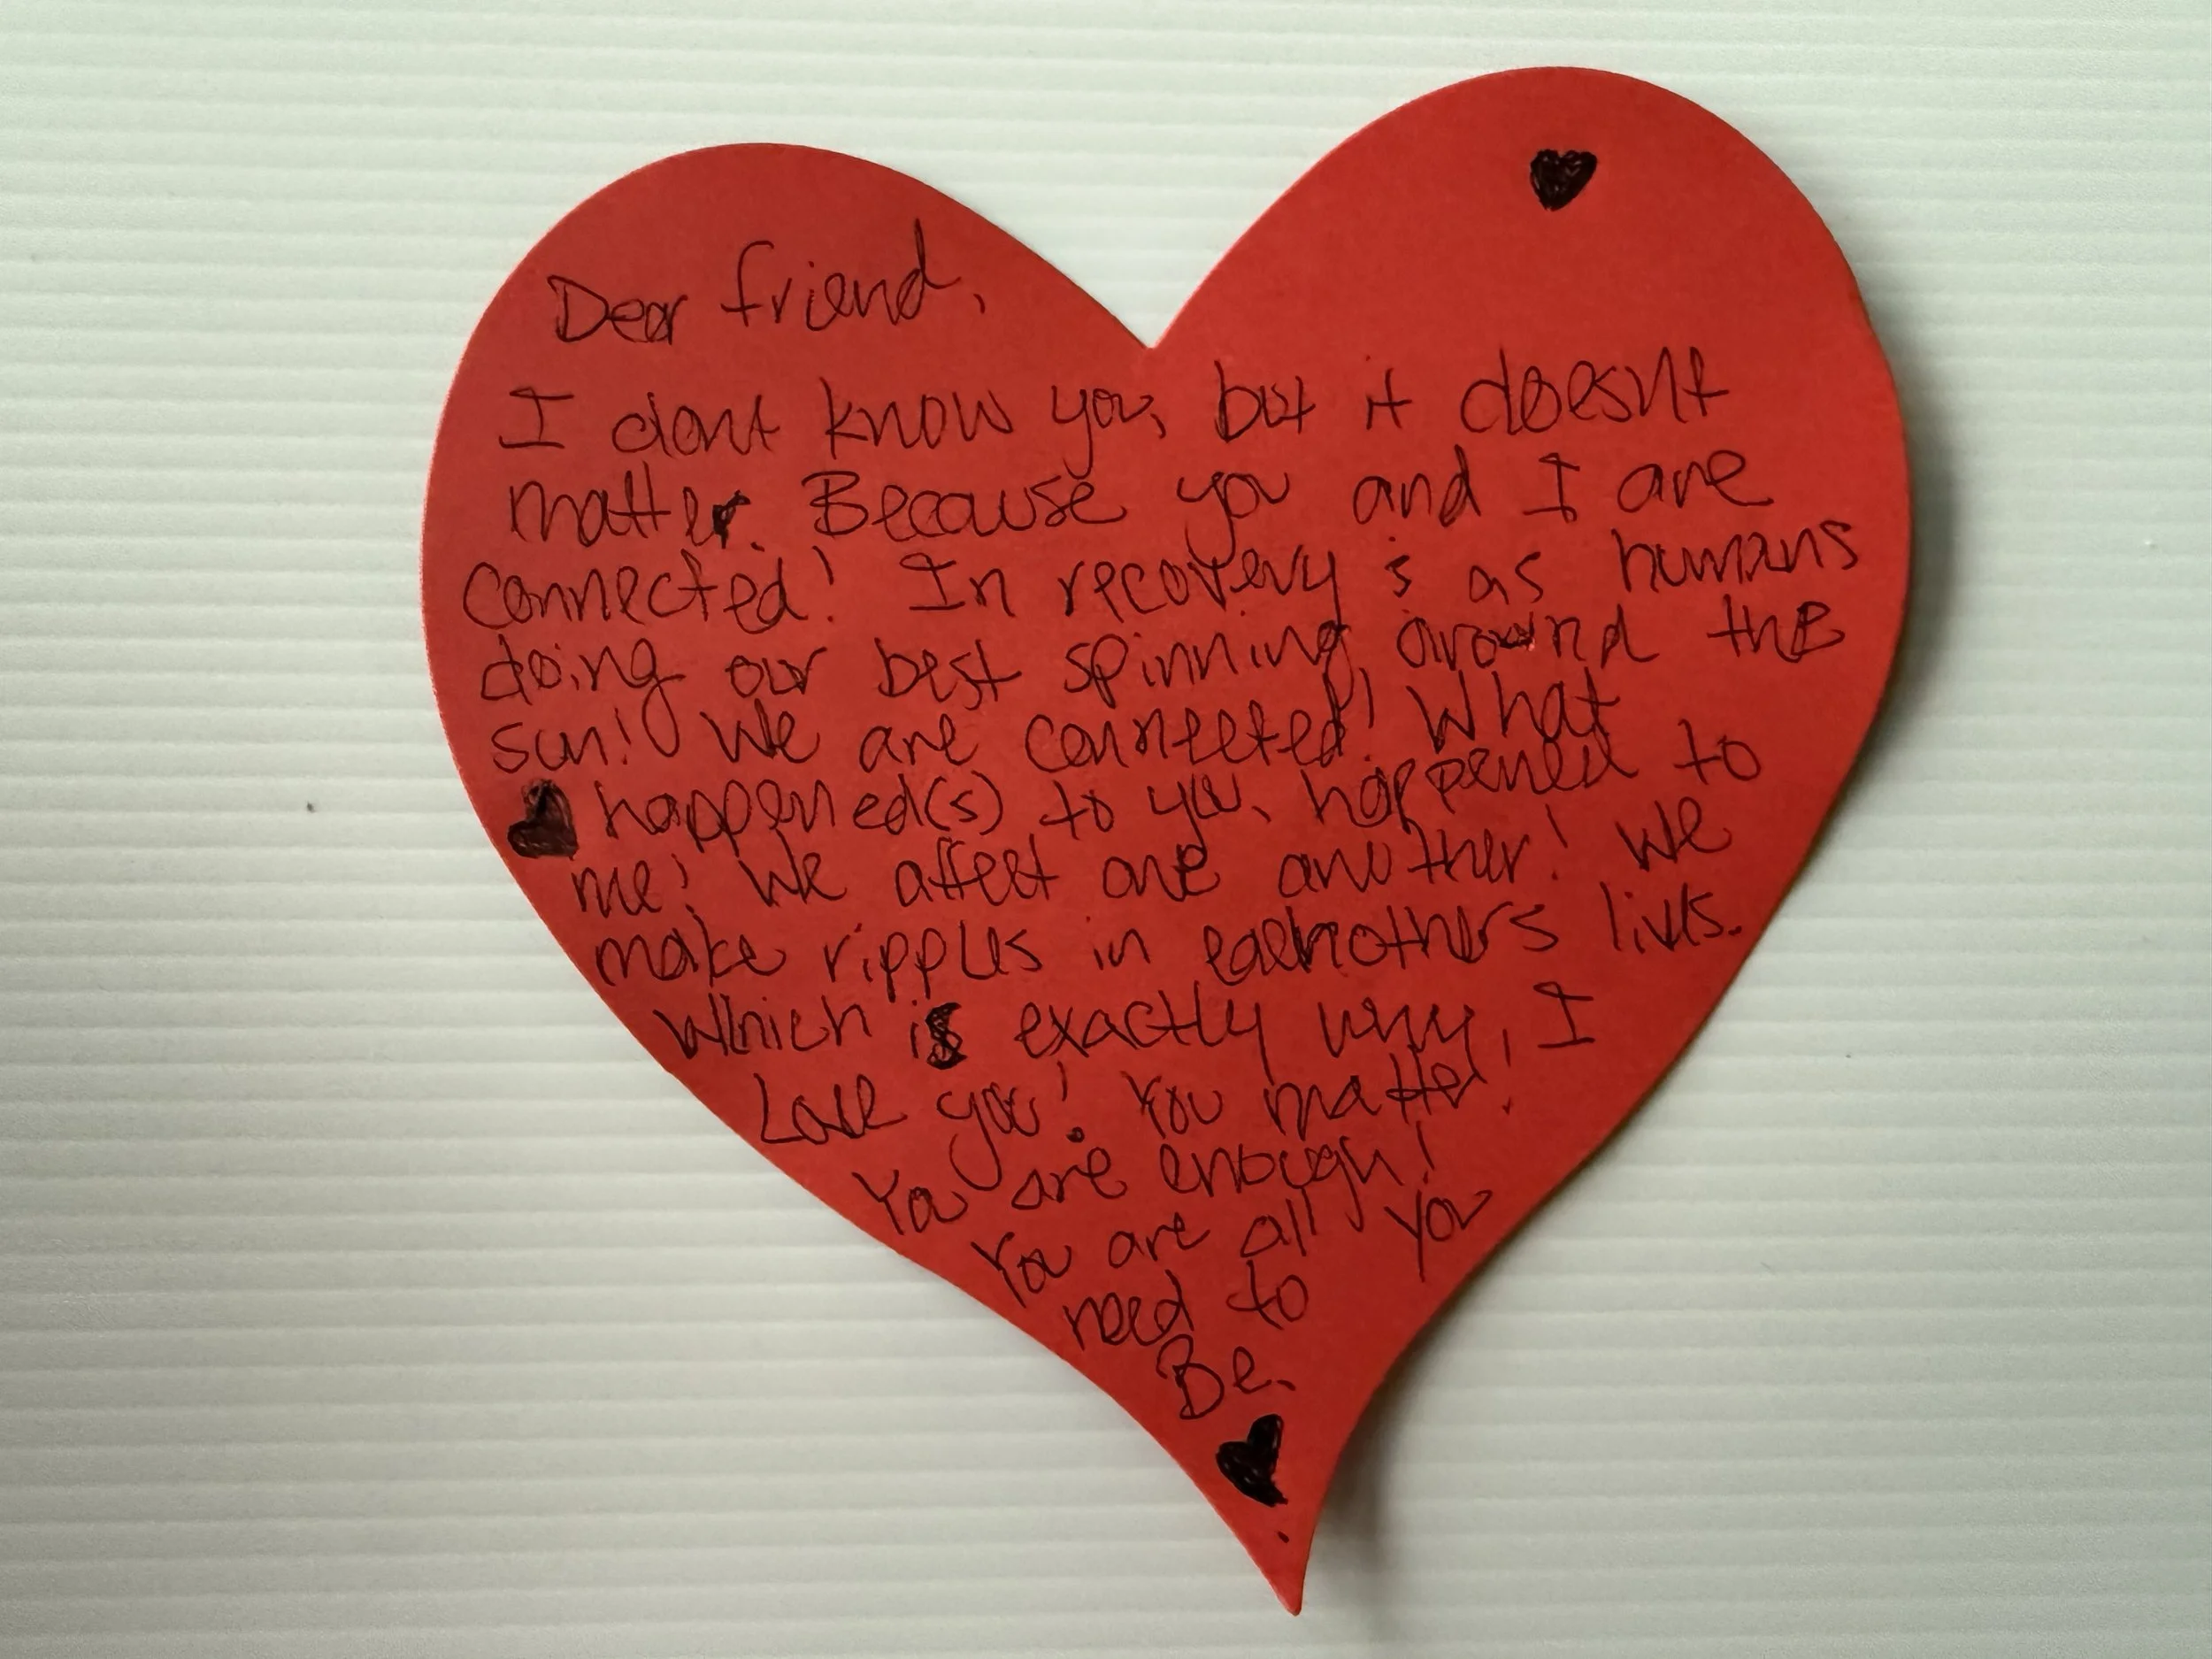 Dear friend,
I dont know you, but it doesnt
matter. Because you and I are
connected! In recovery & as humans
doing our best spinning around the
sun! We are connected! What
happened(s) to you, happened to
me! We affect one another! We
make ripples in eachothers lives.
Which is exactly why, I
Love you! You matter!
You are enough!
You are all you
need to
Be.